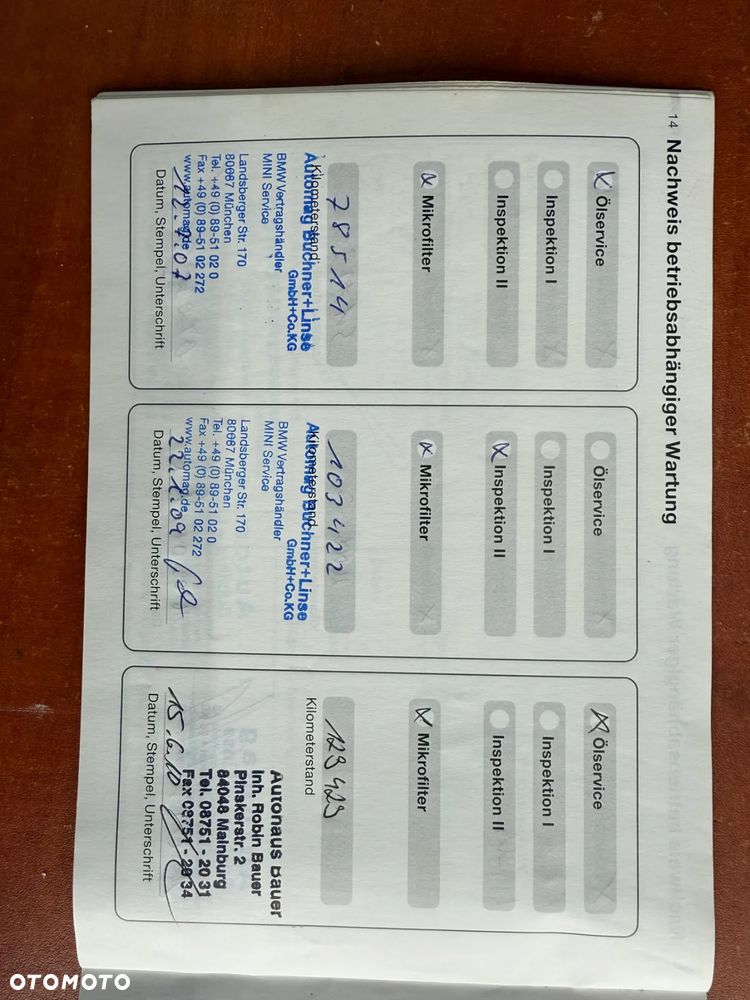 14 Nachweis betriebsabhängiger Wartung
Ölservice
Inspektion I
Inspektion II
Mikrofilter
78514
Kilometerstand
Automag Buchner+Linse
GmbH+Co.KG
BMW Vertragshändler
MINI Service
Landsberger Str. 170
80687 München
Tel. +49 (0) 89-51 02 0
Fax +49 (0) 89-51 02 272
www.automag.de
Datum, Stempel, Unterschrift
Ölservice
Inspektion I
Inspektion II
Mikrofilter
103422
Kilometerstand
Automag Buchner+Linse
GmbH+Co.KG
BMW Vertragshändler
MINI Service
Landsberger Str. 170
80687 München
Tel. +49 (0) 89-51 02 0
Fax +49 (0) 89-51 02 272
www.automag.de
Datum, Stempel, Unterschrift
Ölservice
Inspektion I
Inspektion II
Mikrofilter
129429
Kilometerstand
Autohaus Bauer
Inh. Robin Bauer
Pinskerstr. 2
84048 Mainburg
Tel. 08751 - 20 31
Fax 08751 - 20 34
15.6.10
Datum, Stempel, Unterschrift
OTOMOTO